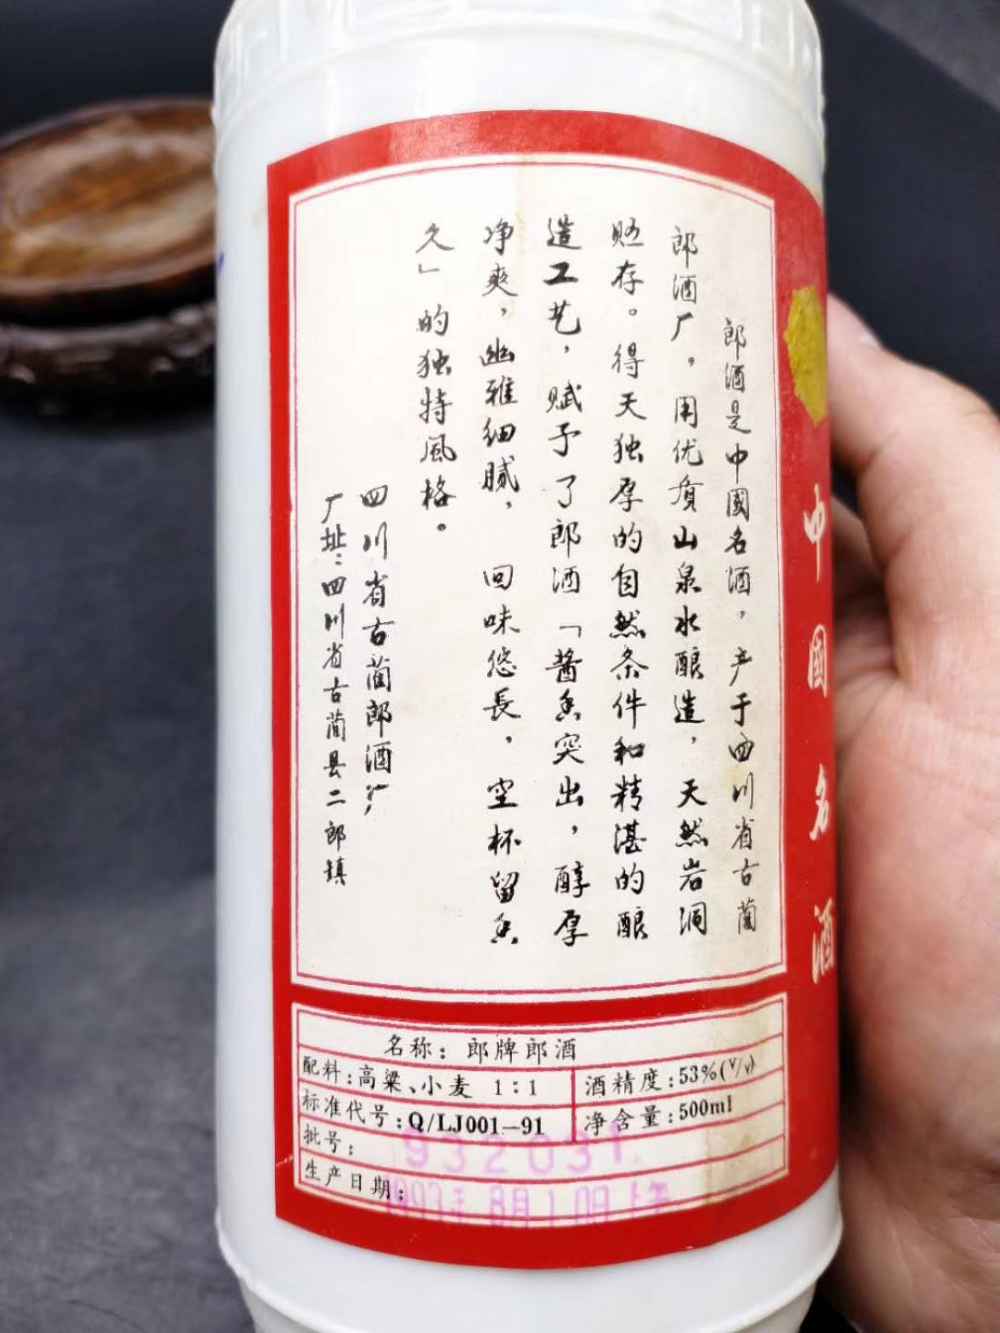 郎酒是中國名酒，产于四川省古蔺
郎酒厂。用优质山泉水酿造，天然岩洞
贮存。得天独厚的自然条件和精湛的酿
造工艺，赋予了郎酒「酱香突出，醇厚
净爽，幽雅细腻，回味悠長，空杯留香
久」的独特風格。
四川省古蔺郎酒厂
厂址：四川省古蔺县二郎镇
中國名酒
名称：郎牌郎酒
配料：高粱、小麦 1：1
酒精度：53%(V/v)
标准代号：Q/LJ001—91
净含量：500ml
批号：932031.
生产日期：1993年8月10日上午